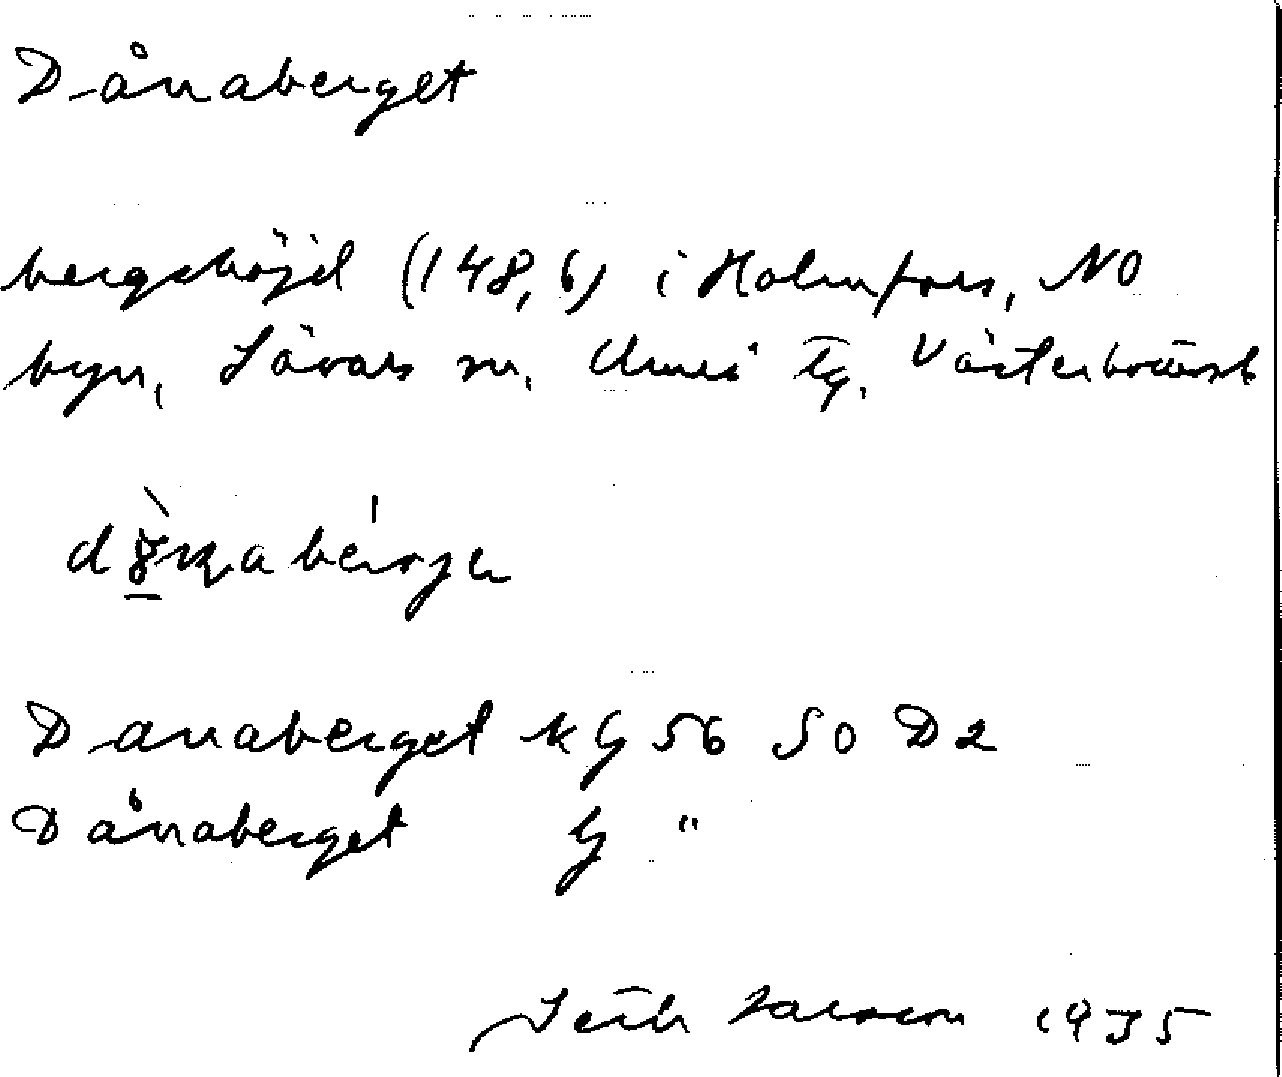 Dånaberget
bergshöjd (148,6) i Holmfors, NO
byn, Sävars sn, Umeå tg, Västerbottens l
Danaberget KG 56 SO D2
Dånaberget G "
Larsson 1935